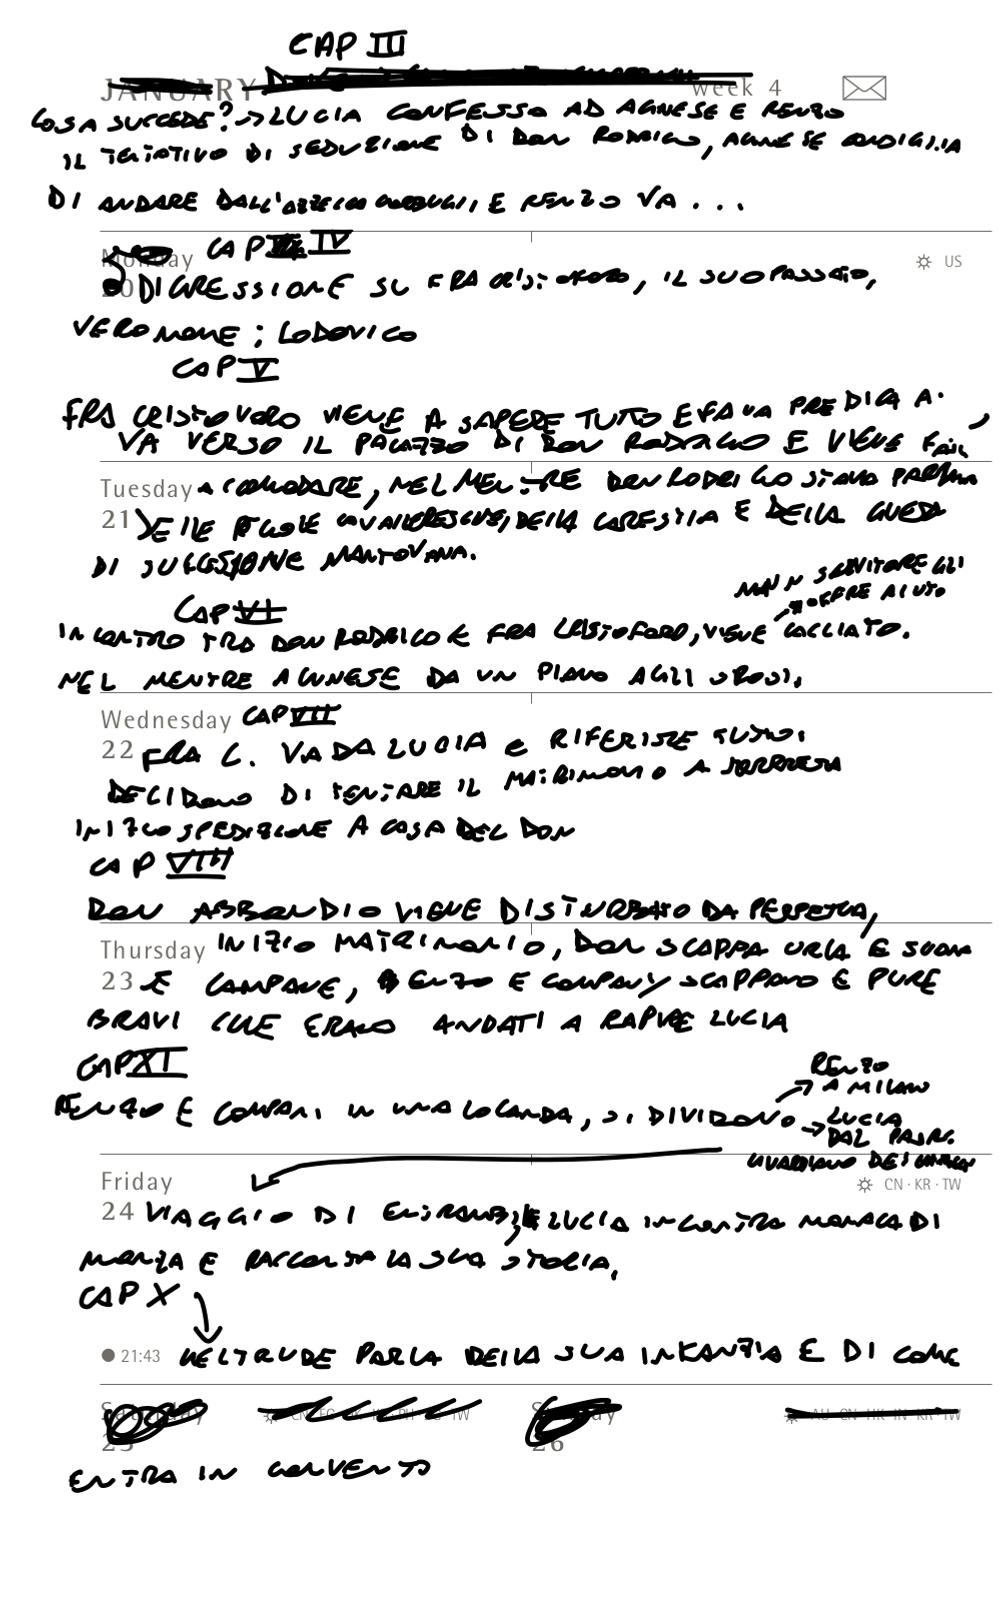 CAP III
JANUARY week 4
COSA SUCCEDE? -> LUCIA CONFESSO AD AGNESE E RENZO
IL TENTATIVO DI SEDUZIONE DI DON RODRIGO, AGNESE CONSIGLIA
DI ANDARE DALL'AZZECCAGARBUGLI, E RENZO VA...
Monday CAP IV
US
20 DIGRESSIONE SU FRA CRISTOFORO, IL SUO PASSATO,
VERO NOME: LODOVICO
CAP V
FRA CRISTOVORO VIENE A SAPERE TUTO E FA UNA PREDICA A.
VA VERSO IL PALAZZO DI DON RODRIGO E VIENE FATTO
Tuesday ACCOMODARE, NEL MENTRE DON RODRIGO STAVA PARLANDO
21 DELLE REGOLE CAVALLERESCHE, DELLA CARESTIA E DELLA GUERRA
DI SUCCESSIONE MANTOVANA.
MA UN SERVITORE GLI
OFFRE AIUTO
CAP VI
INCONTRO TRA DON RODRIGO E FRA CRISTOFORO, VIENE CACCIATO.
NEL MENTRE AGNESE DA UN PIANO AGLI SPOSI.
Wednesday CAP VII
22 FRA C. VA DA LUCIA e RIFERISCE TUTTO.
DECIDONO DI TENTARE IL MATRIMONIO A SORPRESA
INIZIO SPEDIZIONE A CASA DEL DON
CAP VIII
DON ABBONDIO VIENE DISTURBATO DA PERPETUA,
Thursday INIZIO MATRIMONIO, DON SCAPPA URLA E SUONA
23 E CAMPANE, RENZO E COMPANY SCAPPANO E PURE
BRAVI CHE ERANO ANDATI A RAPIRE LUCIA
CAP XI
RENZO
A MILANO
RENZO E COMPANI IN UNA LOCANDA, SI DIVIDONO -> LUCIA
DAL PADRE
GUARDIANO DEI
Friday
CN · KR · TW
24 VIAGGIO DI ENTRAMBI, E LUCIA INCONTRA MONACA DI
MONZA E RACCONTA LA SUA STORIA.
CAP X
21:43 GELTRUDE PARLA DELLA SUA INFANZIA E DI COME
ENTRA IN CONVENTO